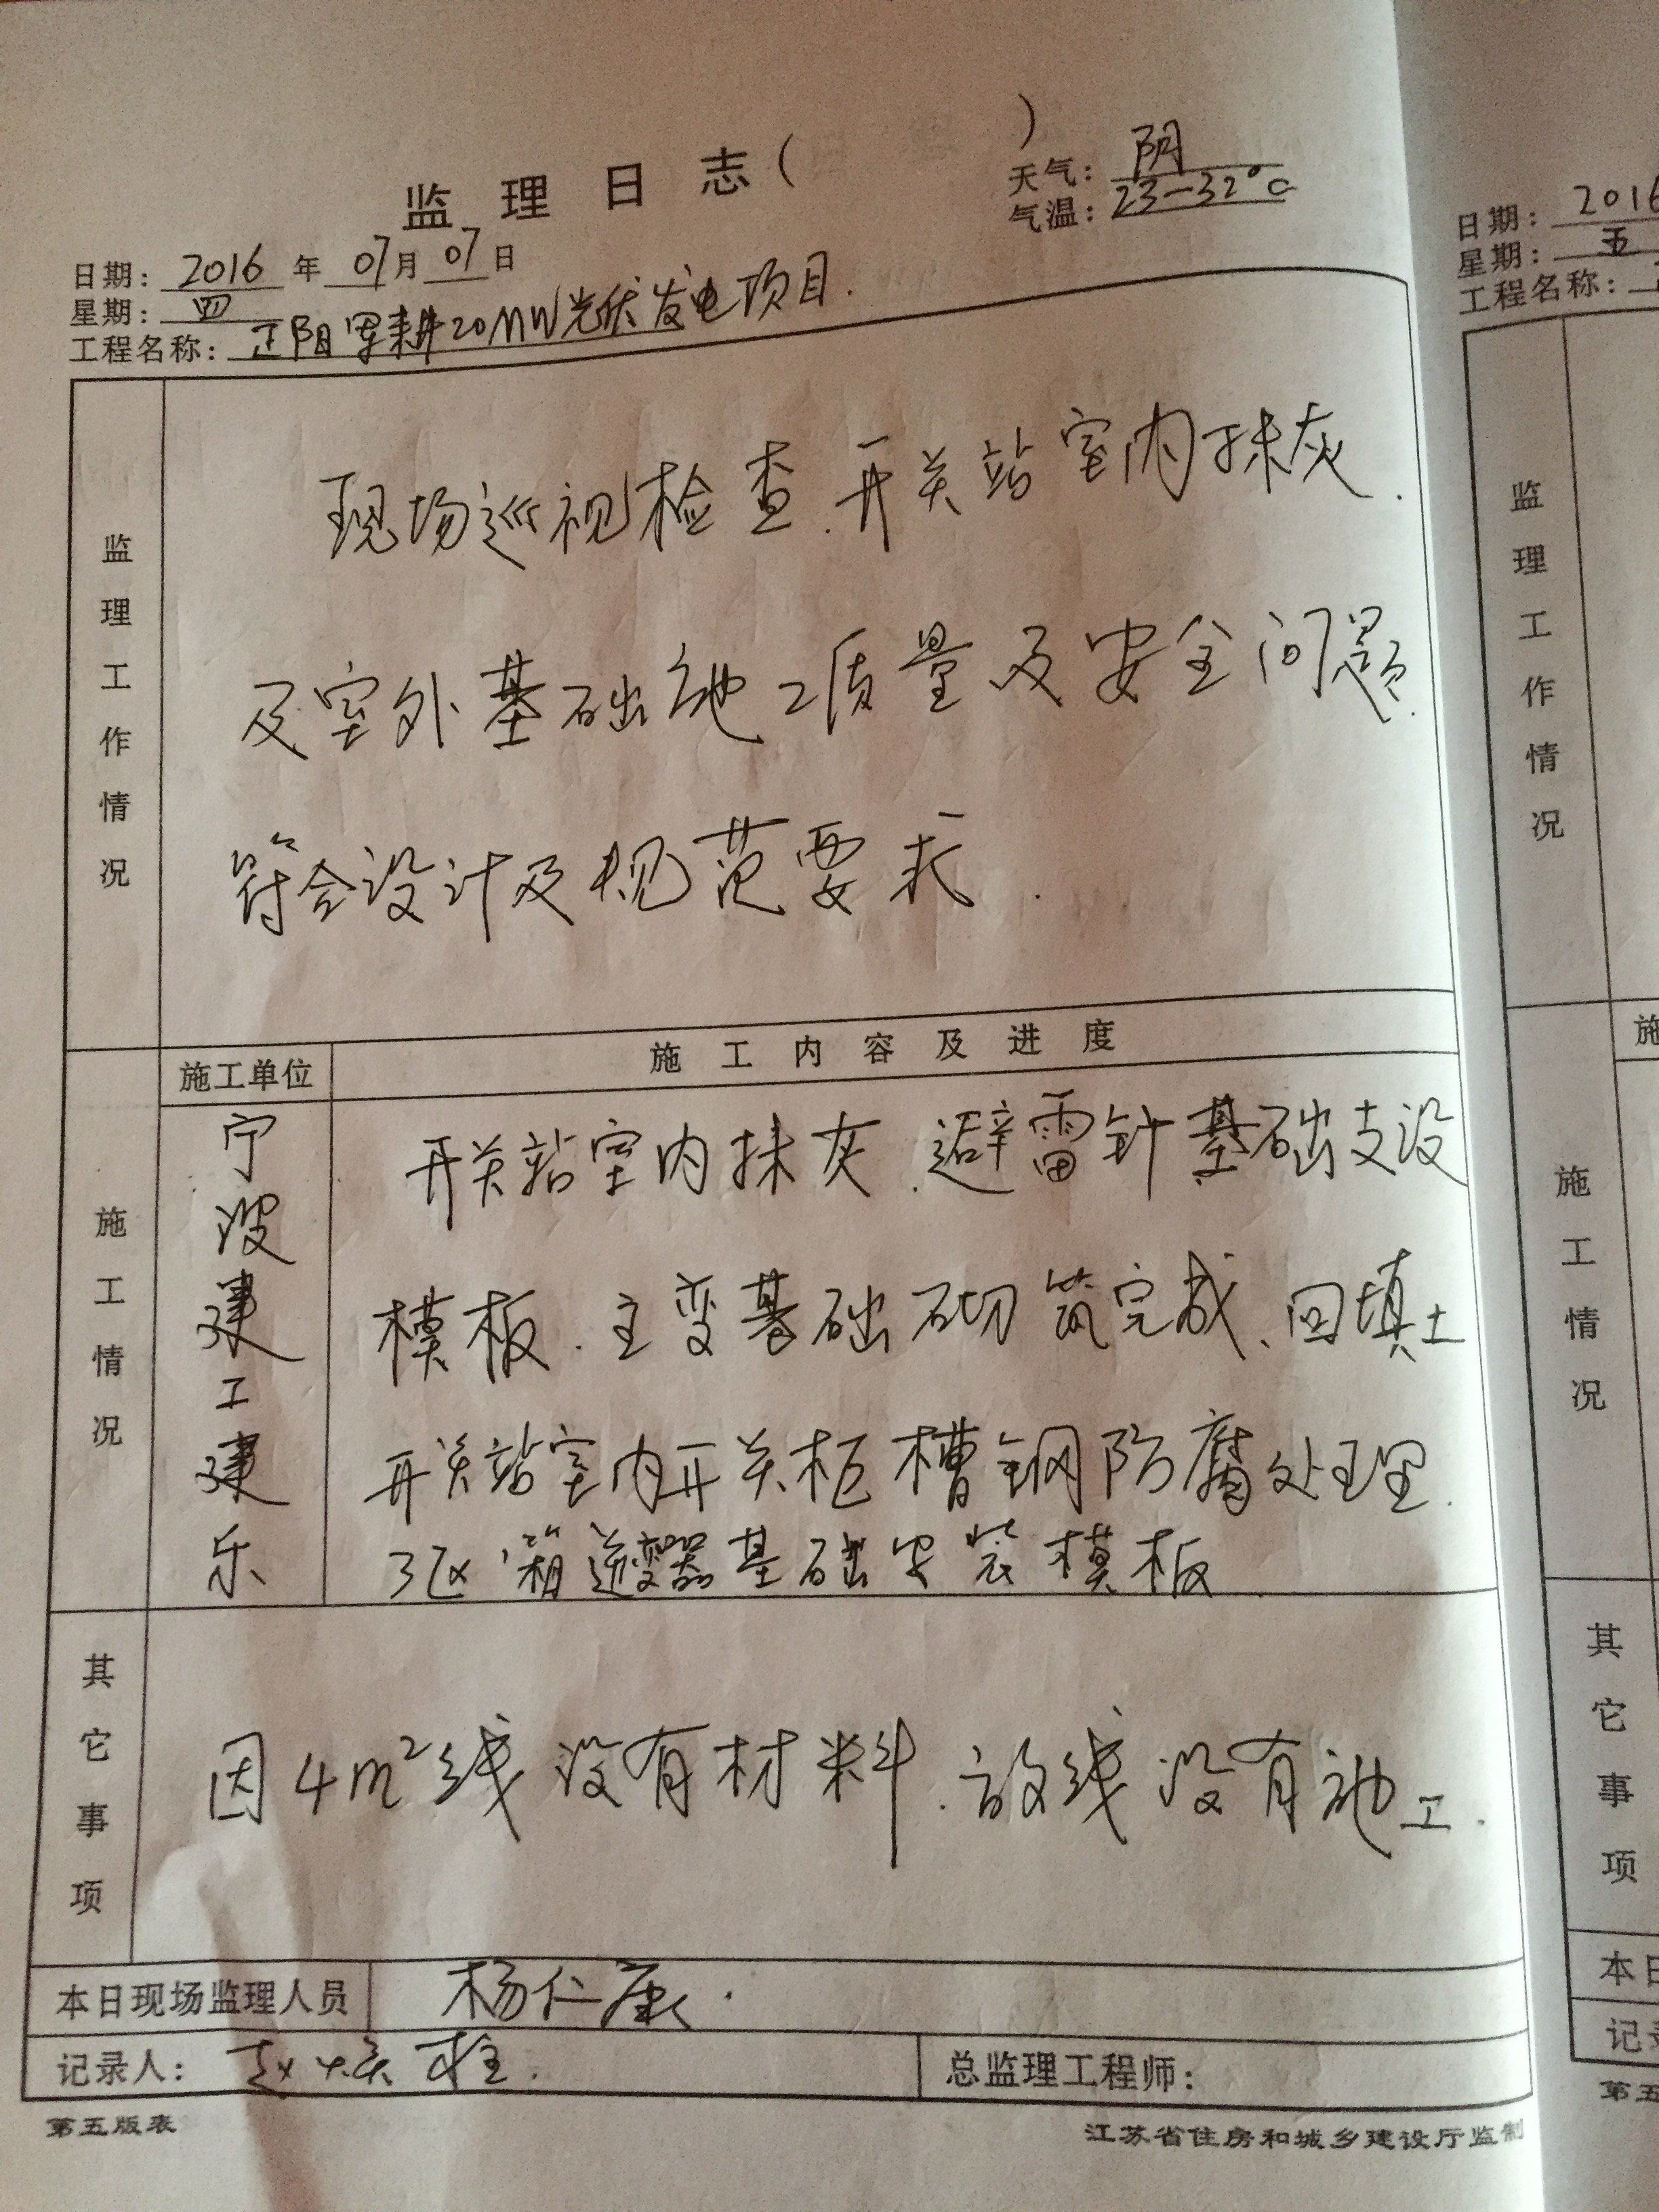 监理日志(      )
天气：阴
气温：23-32℃
日期：2016年07月07日
星期：四
工程名称：正阳军耕20MW光伏发电项目.
监理工作情况
现场巡视检查.开关站室内抹灰.
及室外基础施工质量及安全问题.
符合设计及规范要求.
施工情况
施工单位
施工内容及进度
宁波建工建乐
开关站室内抹灰.避雷针基础支设
模板.主变基础砌筑完成、回填土
开关站室内开关柜槽钢防腐处理.
3区箱逆变器基础安装模板.
其它事项
因4m²线没有材料.放线没有施工.
本日现场监理人员 杨仁康.
记录人：赵焕柱.
总监理工程师：
第五版表
江苏省住房和城乡建设厅监制
日期：2016
星期：五
工程名称：
监理工作情况
施
施工情况
其它事项
本日
记录
第五